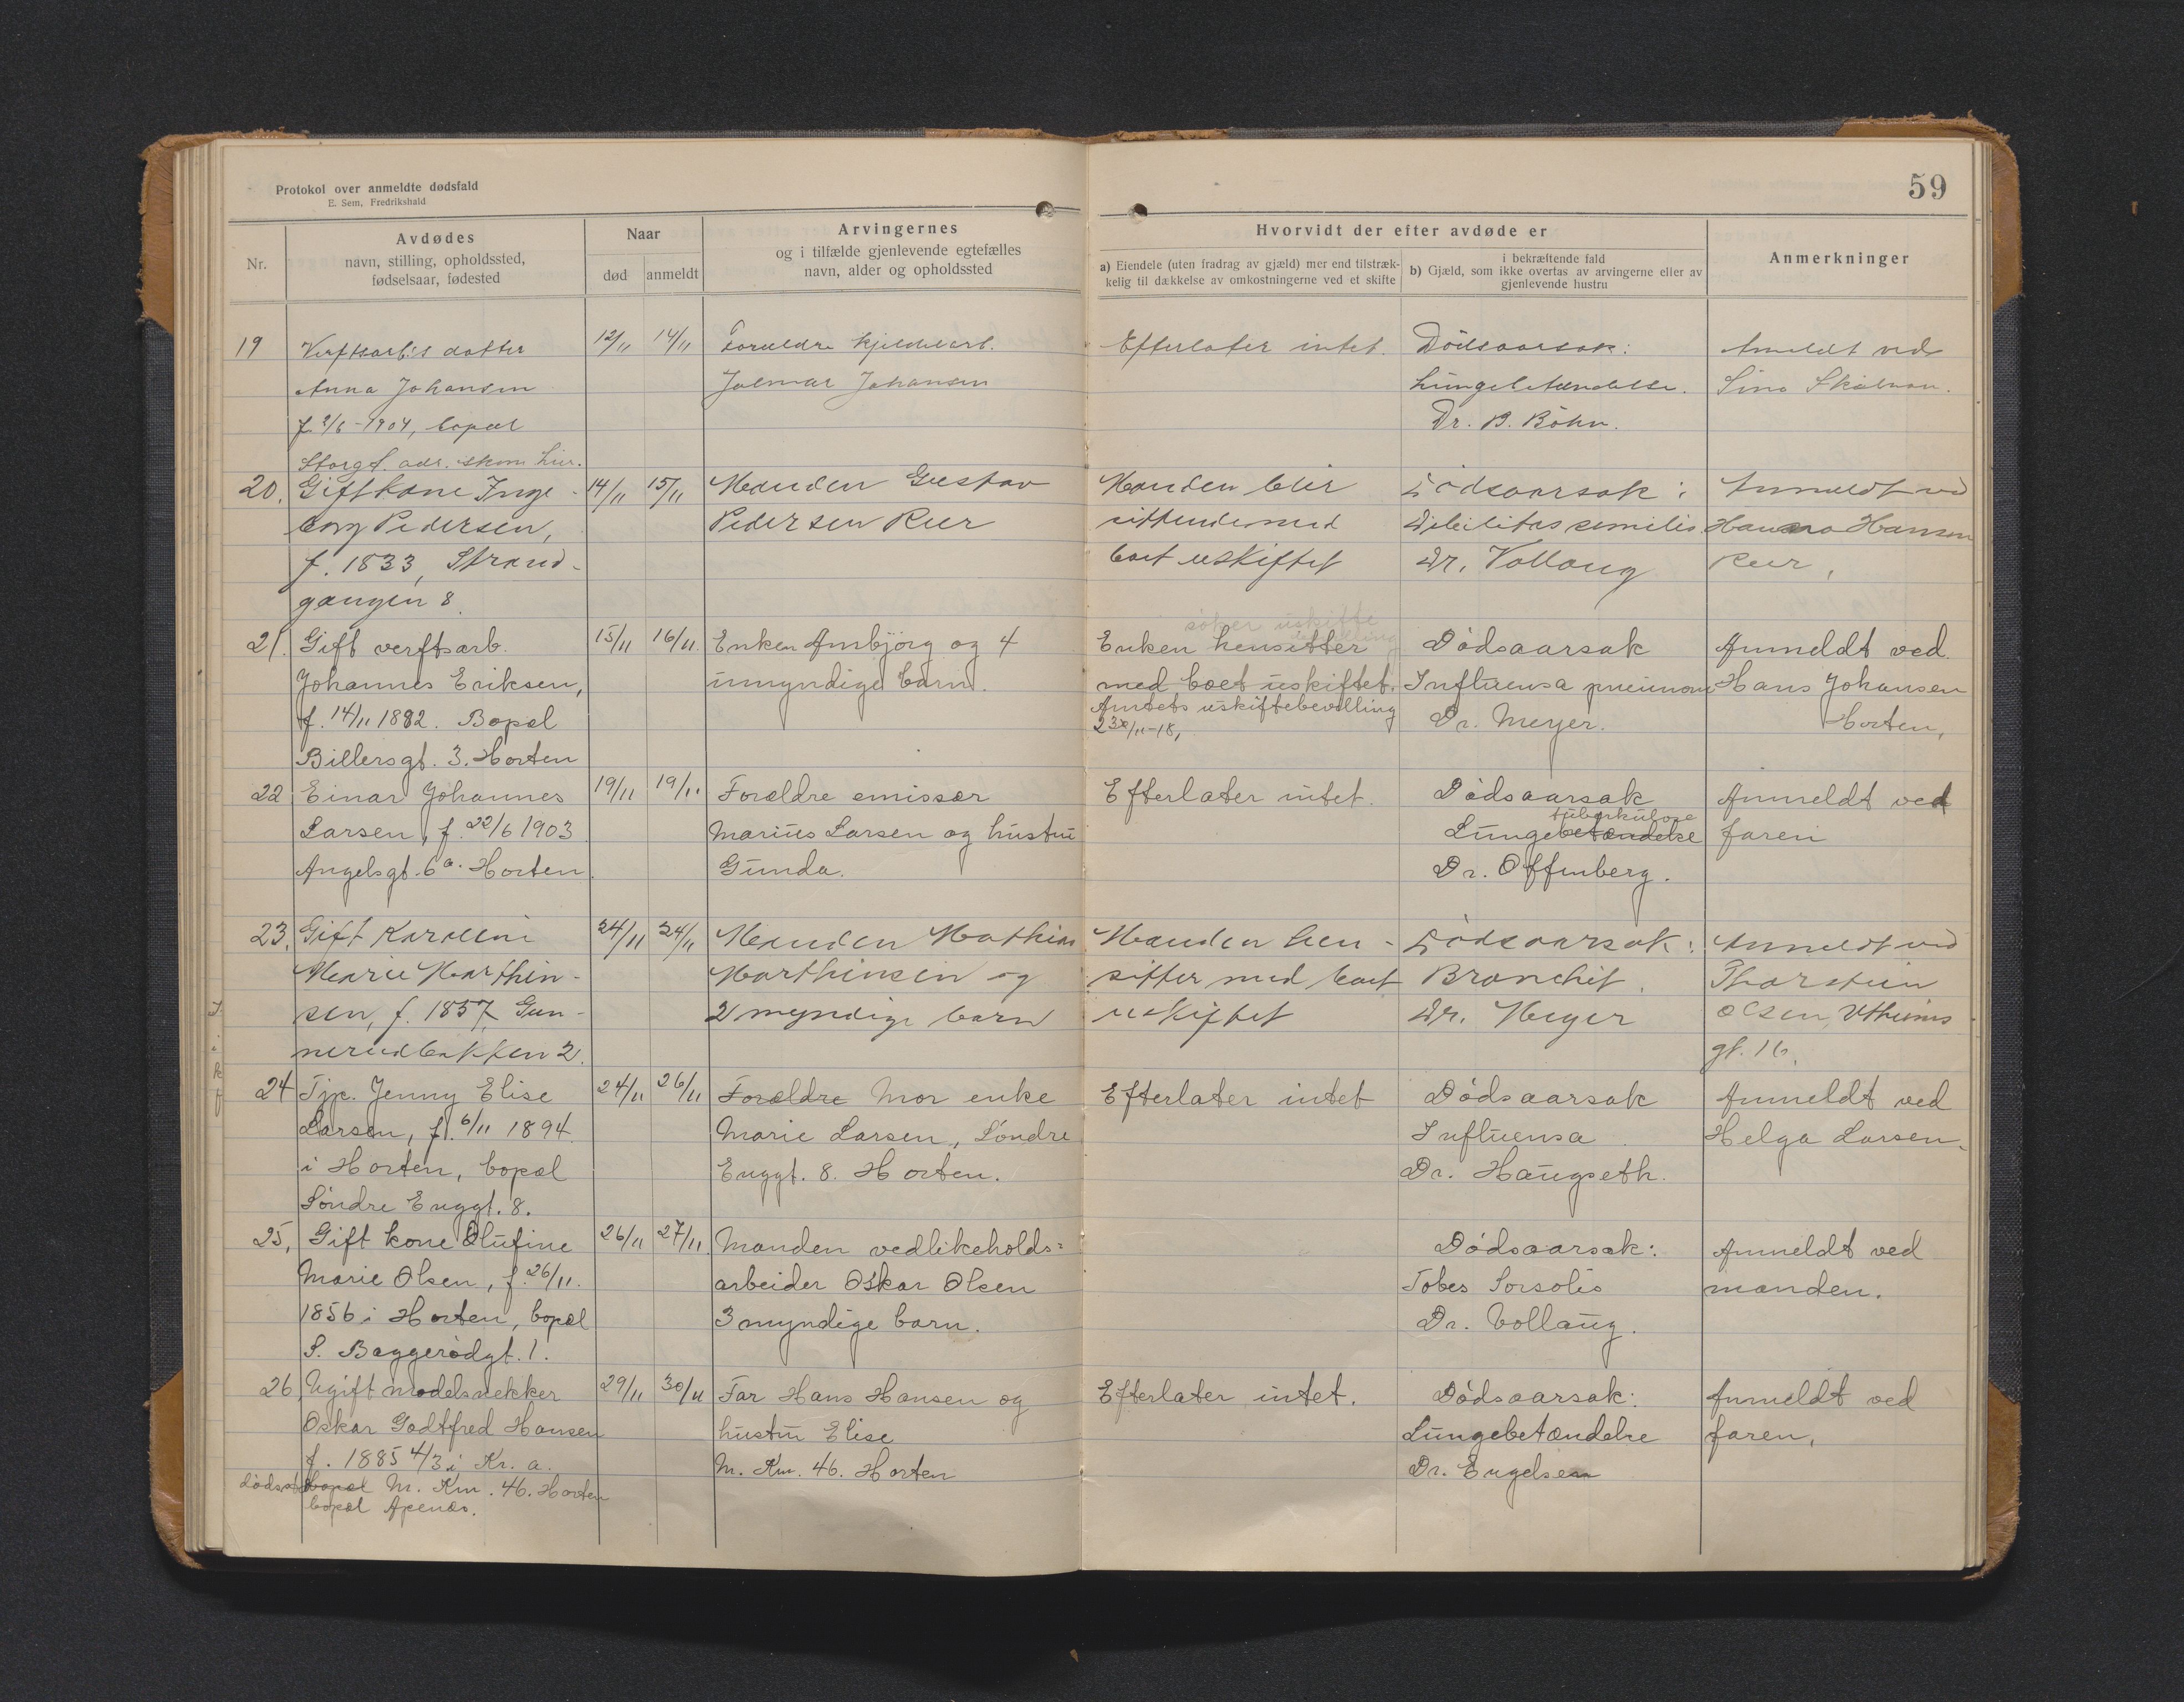 Protokol over anmeldte dødsfald
E. Sem, Fredrikshald
59
Nr.
Avdødes
navn, stilling, opholdssted,
fødselsaar, fødested
Naar
død
anmeldt
Arvingernes
og i tilfælde gjenlevende egtefælles
navn, alder og opholdssted
Hvorvidt der efter avdøde er
a) Eiendele (uten fradrag av gjæld) mer end tilstræk-
kelig til dækkelse av omkostningerne ved et skifte
i bekræftende fald
b) Gjæld, som ikke overtas av arvingerne eller av
gjenlevende hustru
Anmerkninger
19
Verftsarb.s datter
Anna Johansen
f. 2/6-1904, bopæl
Storgt.
12/11
14/11
Forældre kjeldelarb.
Jalmar Johansen
Efterlater intet.
Dödsaarsak:
Lungebetændelse.
Dr. B. Böhn.
Anmeldt ved
20.
Gift kone Inge-
borg Pedersen,
f. 1833, Strand-
gangen 8.
14/11
15/11
Manden Gustav
Pedersen Rør
Manden blir
sittende med
boet uskiftet
Dödsaarsak:
Debilitas senilis
Dr. Vollaug
Anmeldt ved
Hanna Hansen
Rør,
21.
Gift verftsarb.
Johannes Eriksen,
f. 14/11 1882. Bopæl
Billersgt. 3. Horten
15/11
16/11.
Enken Ambjörg og 4
umyndige barn.
söker uskifte
bevilling
Enken hensitter
med boet uskiftet.
Amtets uskiftebevilling
23/11-18,
Dödsaarsak
Influensa pneumoni
Dr. Meyer.
Anmeldt ved
Hans Johansen
Horten,
22
Einar Johannes
Larsen, f. 22/6 1903
Angelsgt. 6a. Horten
19/11
19/11
Forældre emissær
Marius Larsen og hustru
Gunda.
Efterlater intet.
Dödsaarsak
tuberkulose
Lungebetændelse
Dr. Offenberg.
Anmeldt ved
faren
23.
Gift Karoline
Marie Marthin-
sen, f. 1857, Gun-
nerudbakken 2.
24/11
24/11
Manden Mathias
Marthinsen og
2 myndige barn
Manden hen-
sitter med boet
uskiftet
Dödsaarsak:
Bronchit.
Dr. Meyer
Anmeldt ved
Thorstein
Olsen,
gt. 16.
24
Tjp. Jenny Elise
Larsen, f. 6/11 1894.
i Horten, bopæl
Söndre Enggt. 8.
24/11
26/11
Forældre Mor enke
Marie Larsen, Söndre
Enggt. 8. Horten.
Efterlater intet
Dödsaarsak
Influensa
Dr. Haugseth.
Anmeldt ved
Helga Larsen.
25,
Gift kone Olufine
Marie Olsen, f. 26/11.
1856 i Horten, bopæl
S. Baggerödgt. 1.
26/11
27/11
Manden vedlikeholds=
arbeider Oskar Olsen
3 myndige barn.
Dödsaarsak:
Tobes Sorsolis
Dr. Vollaug.
Anmeldt ved
manden.
26,
Ugift modelsnekker
Oskar Godtfred Hansen
f. 1885 4/3 i Kr. a.
bopæl M. Km. 46. Horten
bopæl Apenæs.
29/11
30/11
Far Hans Hansen og
hustru Elise
M. Km. 46. Horten
Efterlater intet.
Dödsaarsak:
Lungebetændelse
Dr. Engelsen
Anmeldt ved
faren,